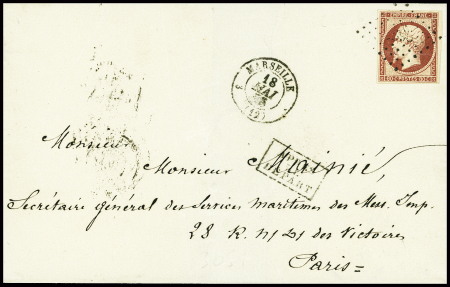 EMPIRE FRANC.
80 C. POSTES 80 C.
MARSEILLE
18
MAI
(12)
Monsieur
Monsieur Mainié,
DÉPART
Secrétaire général des Services maritimes des Mess. Imp.
28 R. N. D. des Victoires
Paris =